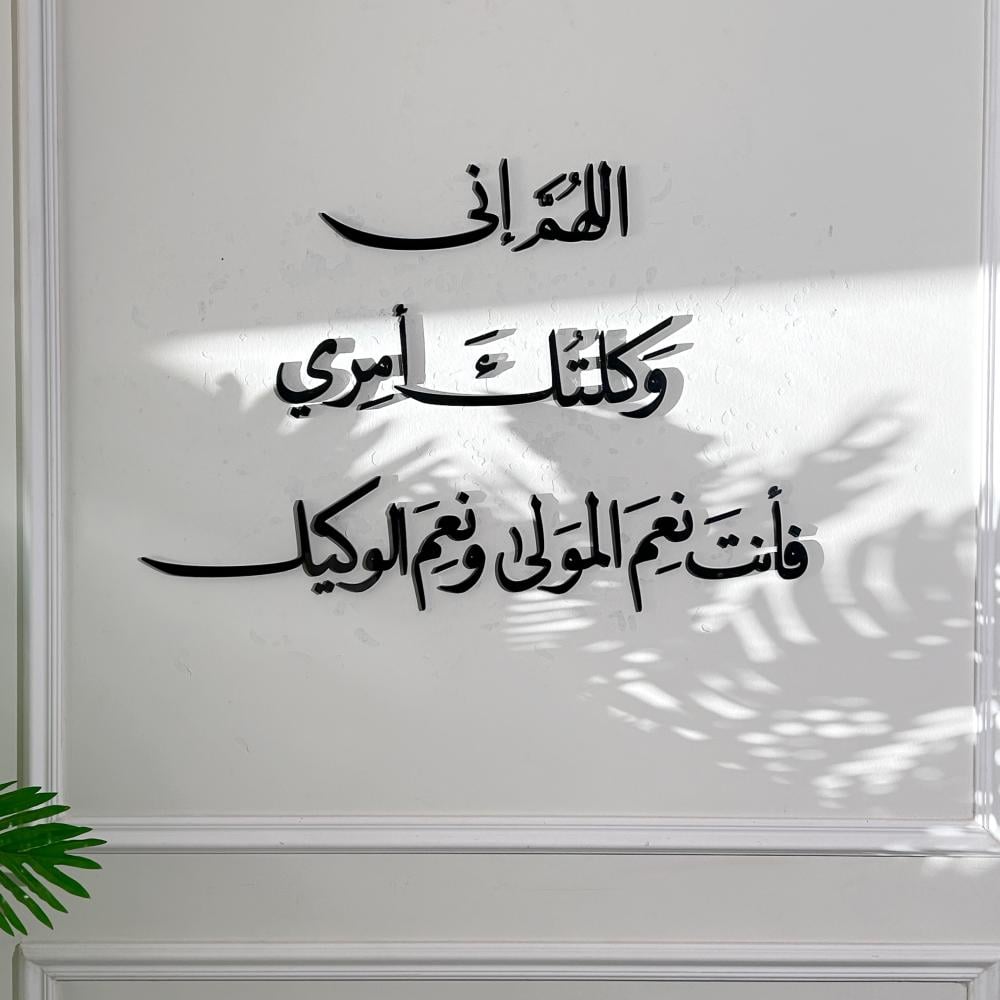 اللهُمَّ إنى
وَكلتُكَ أمِري
فأنتَ نعِمَ المَولى ونعِمَ الوكيل